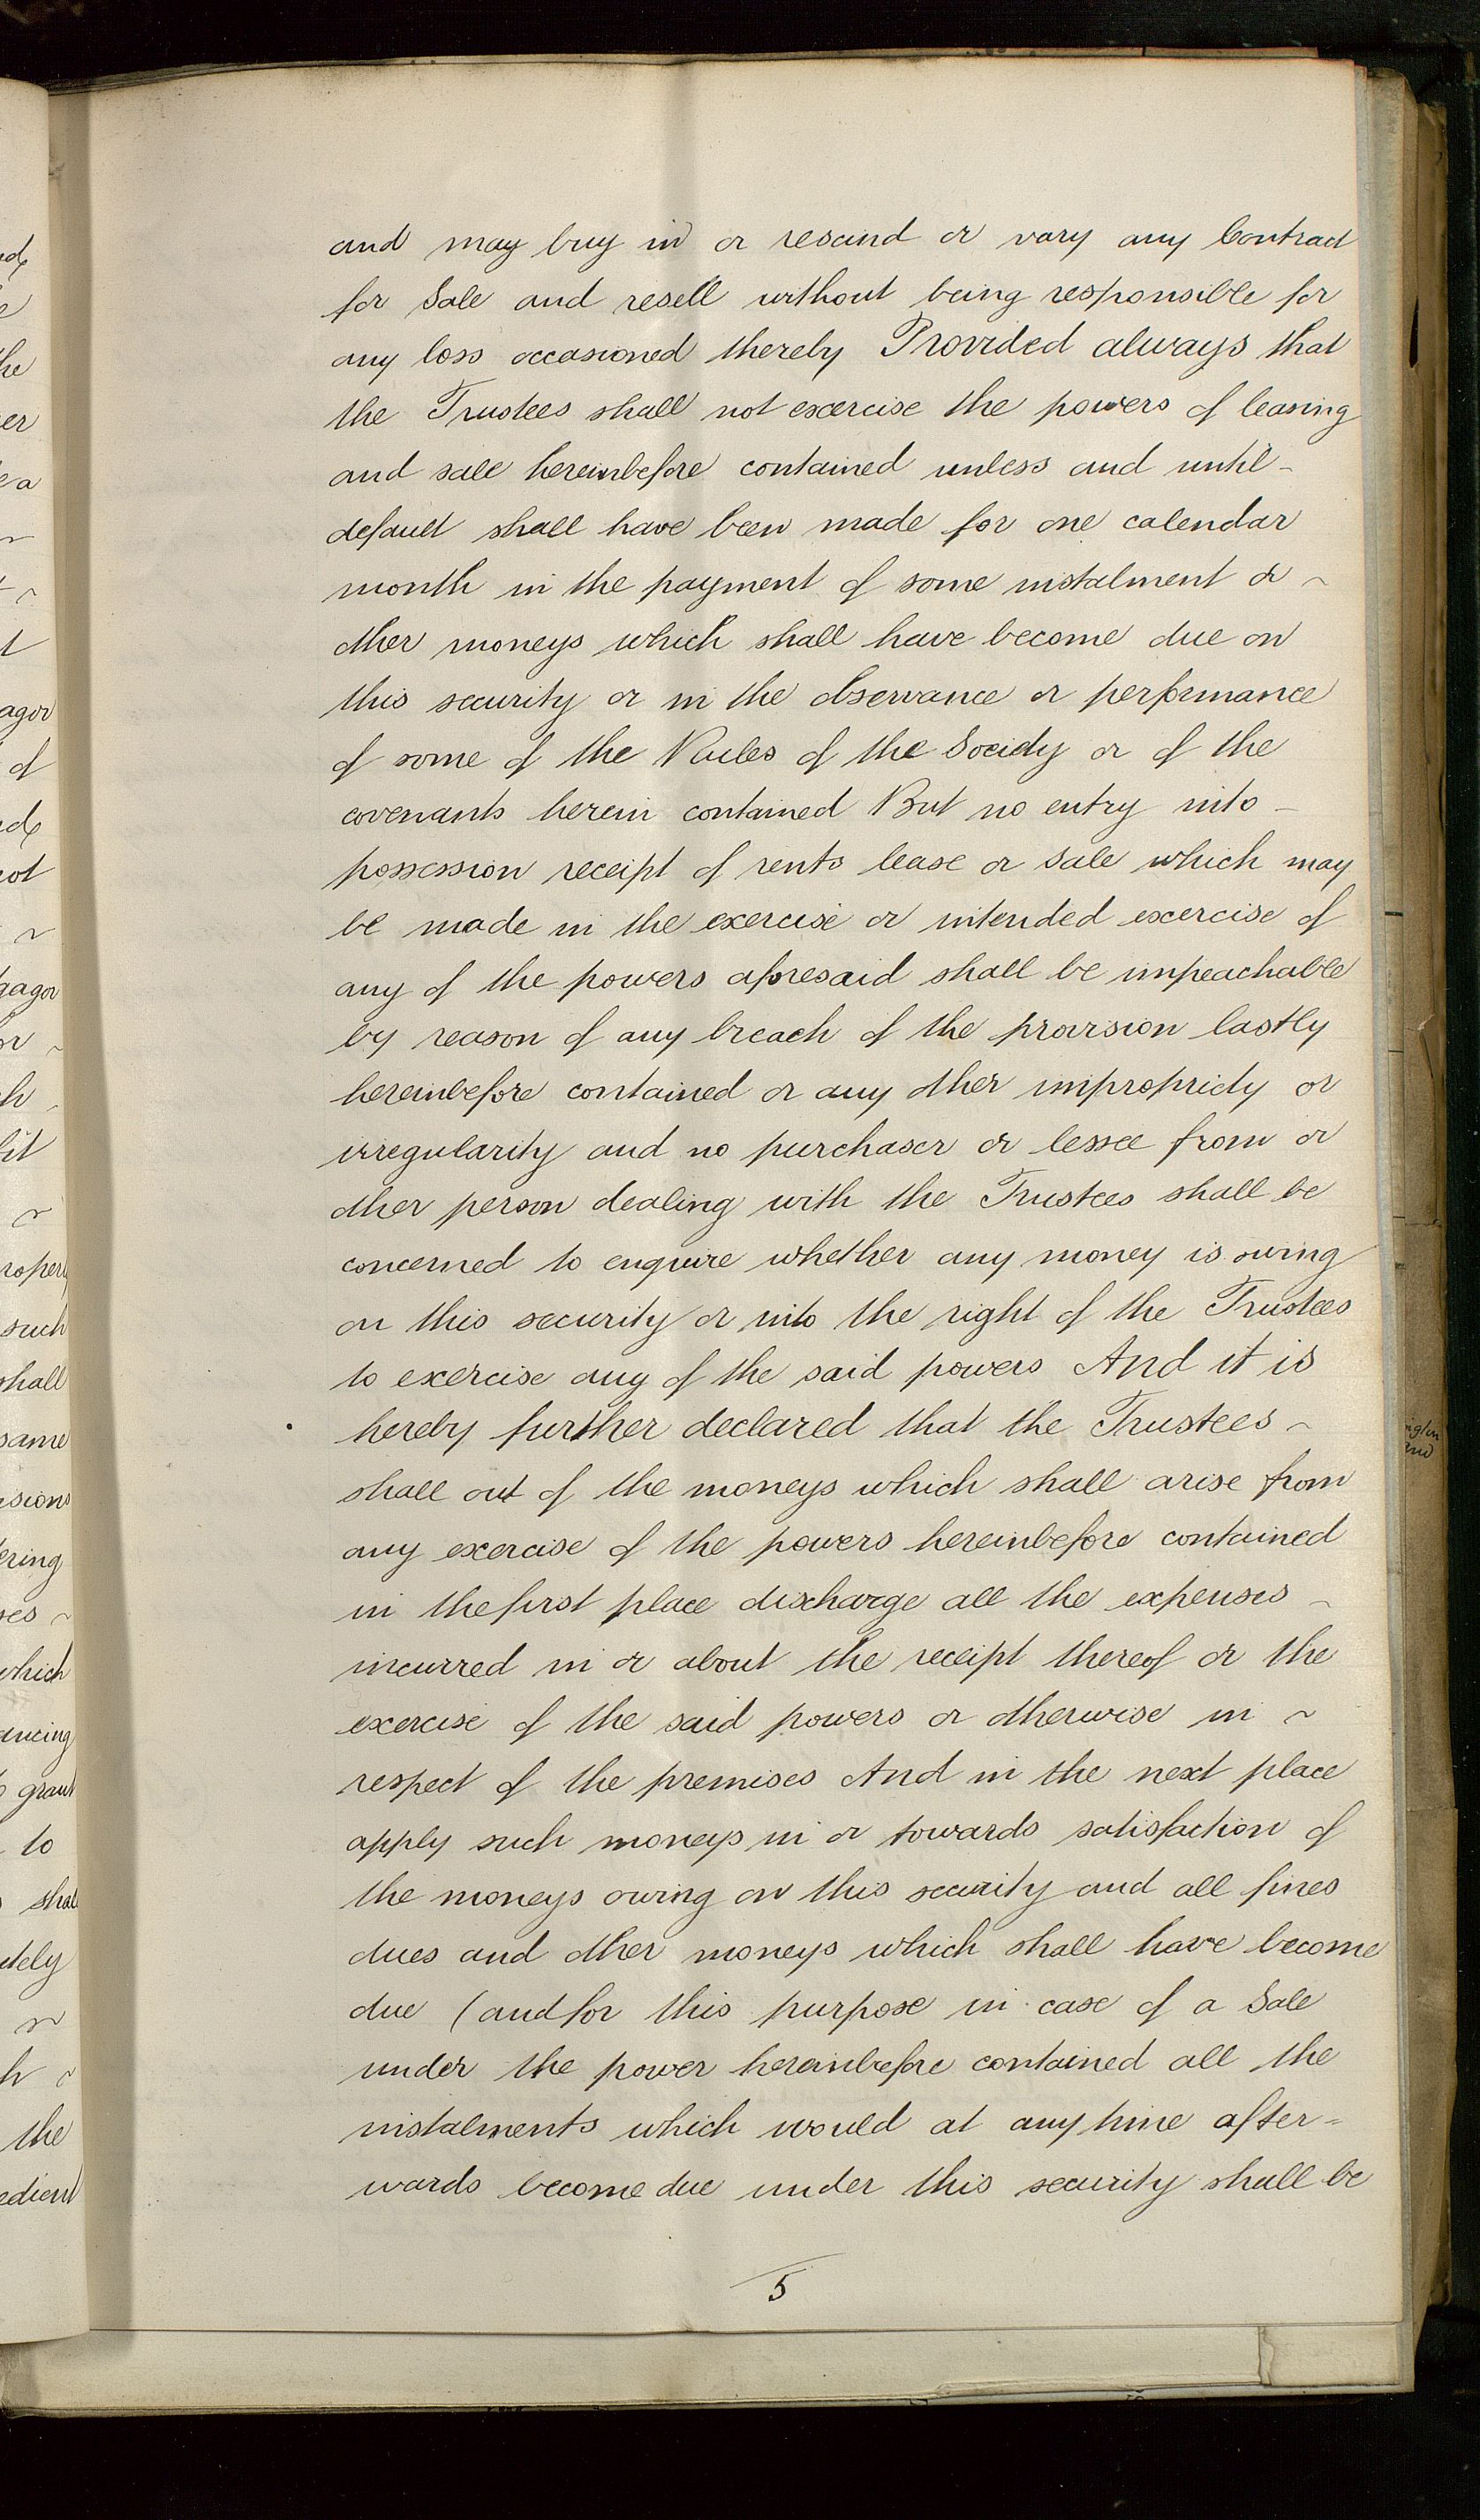 and may buy in or rescind or vary any Contract
for Sale and resell without being responsible for
any loss occasioned thereby Provided always that
the Trustees shall not exercise the powers of leasing
and sale hereinbefore contained unless and until -
default shall have been made for one calendar
month in the payment of some instalment or ~
other moneys which shall have become due on
this security or in the observance or performance
of some of the Rules of the Society or of the
covenants herein contained But no entry into -
possession receipt of rents lease or Sale which may
be made in the exercise or intended exercise of
any of the powers aforesaid shall be impeachable
by reason of any breach of the provision lastly
hereinbefore contained or any other impropriety or
irregularity and no purchaser or lessee from or
other person dealing with the Trustees shall be
concerned to enquire whether any money is owing
on this security or into the right of the Trustees
to exercise any of the said powers And it is
hereby further declared that the Trustees ~
shall out of the moneys which shall arise from
any exercise of the powers hereinbefore contained
in the first place discharge all the expenses ~
incurred in or about the receipt thereof or the
exercise of the said powers or otherwise in ~
respect of the premises And in the next place
apply such moneys in or towards satisfaction of
the moneys owing on this security and all fines
dues and other moneys which shall have become
due (and for this purpose in case of a Sale
under the power hereinbefore contained all the
instalments which would at any time after=
wards become due under this security shall be
5